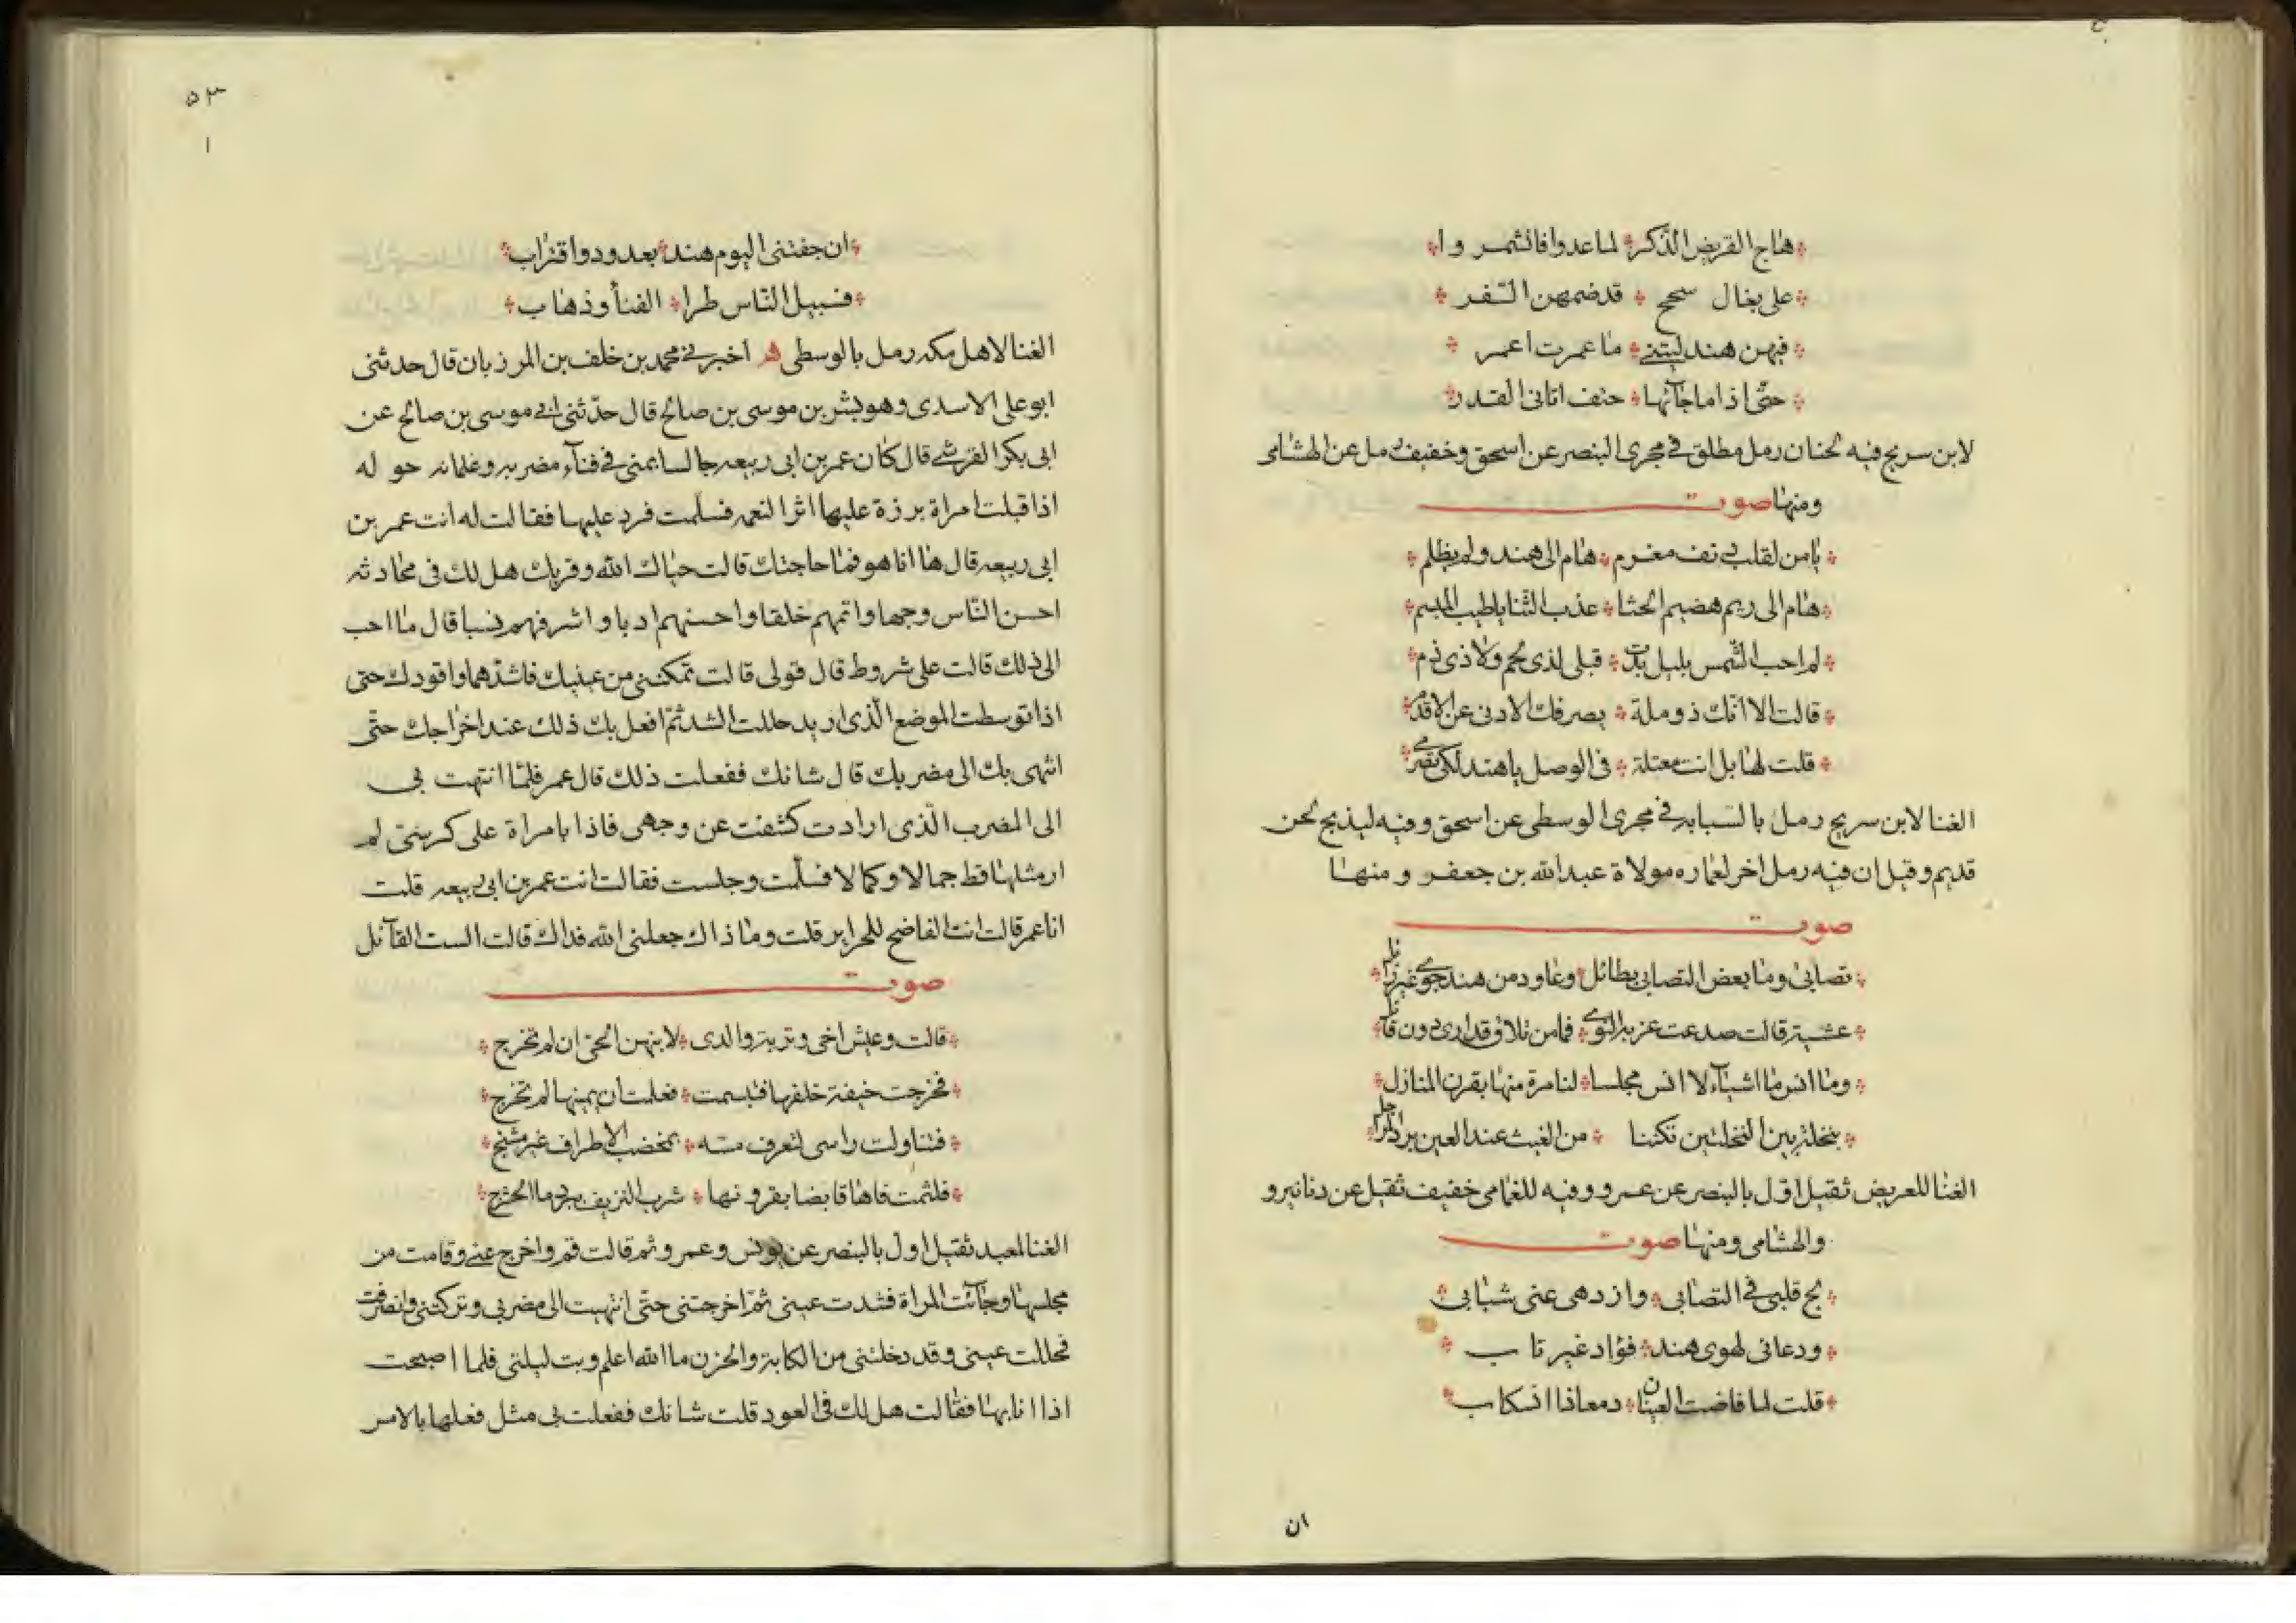 هاج القريض الذكر * لما غدوا فانشمروا
على بغال سحج * قد ضمهن السفر
فيهن هند ليتني * ما عمرت اعمر
حتى اذا ما جآئها * حتف اتانى القدر
لابن سريج فيه لحنان رمل مطلق في مجرى البنصر عن اسحق وخفيف رمل عن الهشامى
ومنها صوت
يا من لقلب دنف مغرم * هام الى هند ولم يظلم
هام الى ريم هضيم الحشا * عذب الثنايا طيب المبسم
لم احسب الشمس بليل بدت * قبلى لذى لحم ولا ذى دم
قالت الا انك ذو ملة * يصرفك الادنى عن الاقدم
قلت لها بل انت معتلة * فى الوصل يا هند لكى تصرمي
الغنا لابن سريج رمل بالسبابه في مجرى الوسطى عن اسحق وفيه لبذيح لحن
قديم وقيل ان فيه رمل اخر لعماره مولاة عبد الله بن جعفر ومنها
صوت
تصابى وما بعض التصابى بطائل * وعاود من هند جوي غير زايل
عشية قالت صدعت غربة النوي * فما من تلاق قد ارى دون قابل
وما انس ما اشيآء لا انس مجلسا * لنا مرة منها بقرن المنازل
بنخلة بين النخلتين تكننا * من الغيث عند العين برد المراجل
الغنا للعريض ثقيل اول بالبنصر عن عمرو وفيه للغمامى خفيف ثقيل عن دنانيرو
والهشامى ومنها صوت
لج قلبى فى التصابى * وازدهى عنى شبابى
ودعانى لهوى هند * فؤاد غير تاب
قلت لما فاضت العينان * دمعا ذا انسكاب
ان
٥٣
١
ان جفتنى اليوم هند * بعد ود واقتراب
فسبيل الناس طرا * الفنأ وذهاب
الغنا لاهل مكه رمل بالوسطى اخبرني محمد بن خلف بن المرزبان قال حدثنى
ابو على الاسدى وهو بشر بن موسى بن صالح قال حدثنى ابي موسى بن صالح عن
ابى بكر القرشي قال كان عمر بن ابى ربيعه جالسا بمنى في فنآء مضربه وغلمانه حوله
اذا قبلت امراة برزة عليها اثر النعمه فسلمت فرد عليها فقالت له انت عمر بن
ابى ربيعه قال ها انا هو فما حاجتك قالت حياك الله وقربك هل لك فى محادثه
احسن الناس وجها واتمهم خلقا واحسنهم ادبا واشرفهم نسبا قال ما احب
الى ذلك قالت على شروط قال قولى قالت تمكننى من عينيك فاشدهما واقودك حتى
اذا توسطت الموضع الذى اريد حللت الشد ثم افعل بك ذلك عند اخراجك حتى
انتهى بك الى مضربك قال شانك ففعلت ذلك قال عمر فلما انتهت بى
الى المضرب الذى ارادت كشفت عن وجهى فاذا بامراة على كرسى لم
ار مثلها قط جمالا وكمالا فسلمت وجلست فقالت انت عمر بن ابى ربيعه قلت
انا عمر قالت انت الفاضح للحراير قلت وما ذاك جعلنى الله فداك قالت الست القآئل
صوت
قالت وعيش اخى وتربة والدى * لانبهن الحى ان لم تخرج
فخرجت خيفة خلفها فتبسمت * فعلمت ان يمينها لم تخرج
فتناولت راسى لتعرف مسه * بمخضب الاطراف غير مشنج
فلثمت فاها قابضا بقرونها * شرب النزيف ببرد ما الحشرج
الغنا لمعبد ثقيل اول بالبنصر عن يونس وعمرو ثم قالت قم واخرج عني وقامت من
مجلسها وجآئت المراة فشدت عينى ثم اخرجتنى حتى انتهيت الى مضربى وتركتنى وانصرفت
فحللت عينى وقد دخلنى من الكابة والحزن ما الله اعلم وبت ليلتى فلما اصبحت
اذا انا بها فقالت هل لك فى العود قلت شانك ففعلت بى مثل فعلها بالامس